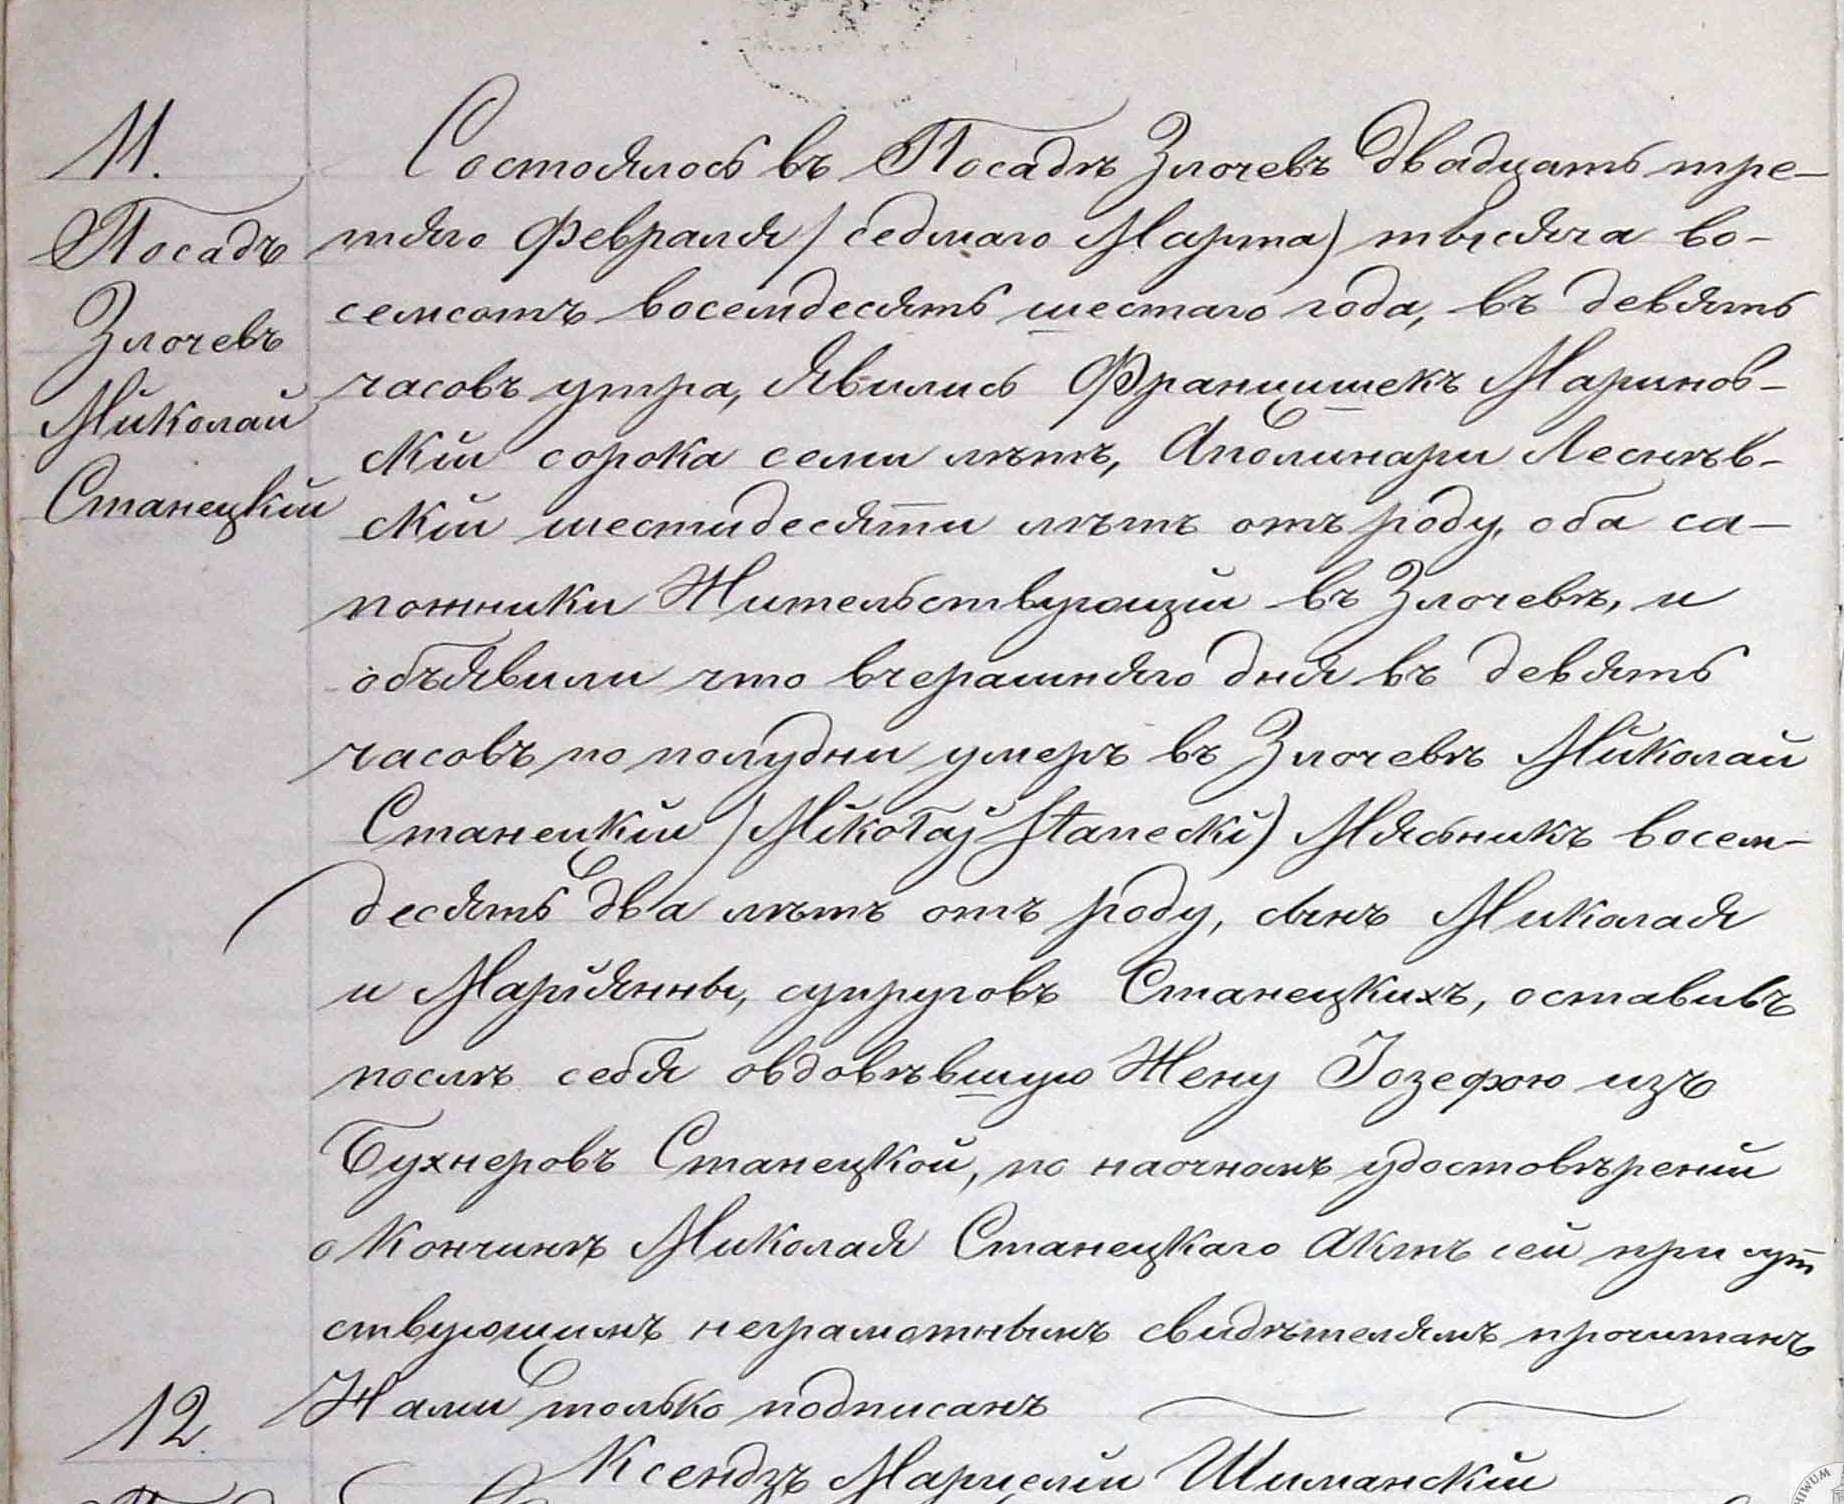 11.
Посадъ
Злочевъ
Миколай
Станецкій
Состоялось въ Посадѣ Злочевѣ двадцать тре-
тяго Февраля / седмаго Марта) тысяча во-
семсотъ восемдесять шестаго года, въ девять
часовъ утра, явились Францишекъ Маринов-
скій сорока семи лѣтъ, Аполинари Леснѣв-
скій шестидесяти лѣтъ отъ роду, оба са-
пожники Жительствующіи въ Злочевѣ, и
объявили что вчерашняго дня въ девять
часовъ по полудни умеръ въ Злочевѣ Миколай
Станецкій / Mikołaj Stanecki) Мясникъ восем-
десять два лѣтъ отъ роду, сынъ Миколая
и Маріянны, супруговъ Станецкихъ, оставивъ
послѣ себя овдовѣвшую Жену Іозефою изъ
Бухнеровъ Станецкой, по наочномъ удостовѣреніи
о Кончинѣ Миколая Станецкаго Актъ сей присут
ствующимъ неграмотнымъ свидѣтелямъ прочитанъ
Нами только подписанъ
Ксендзъ Марцелій Шиманскій
12.